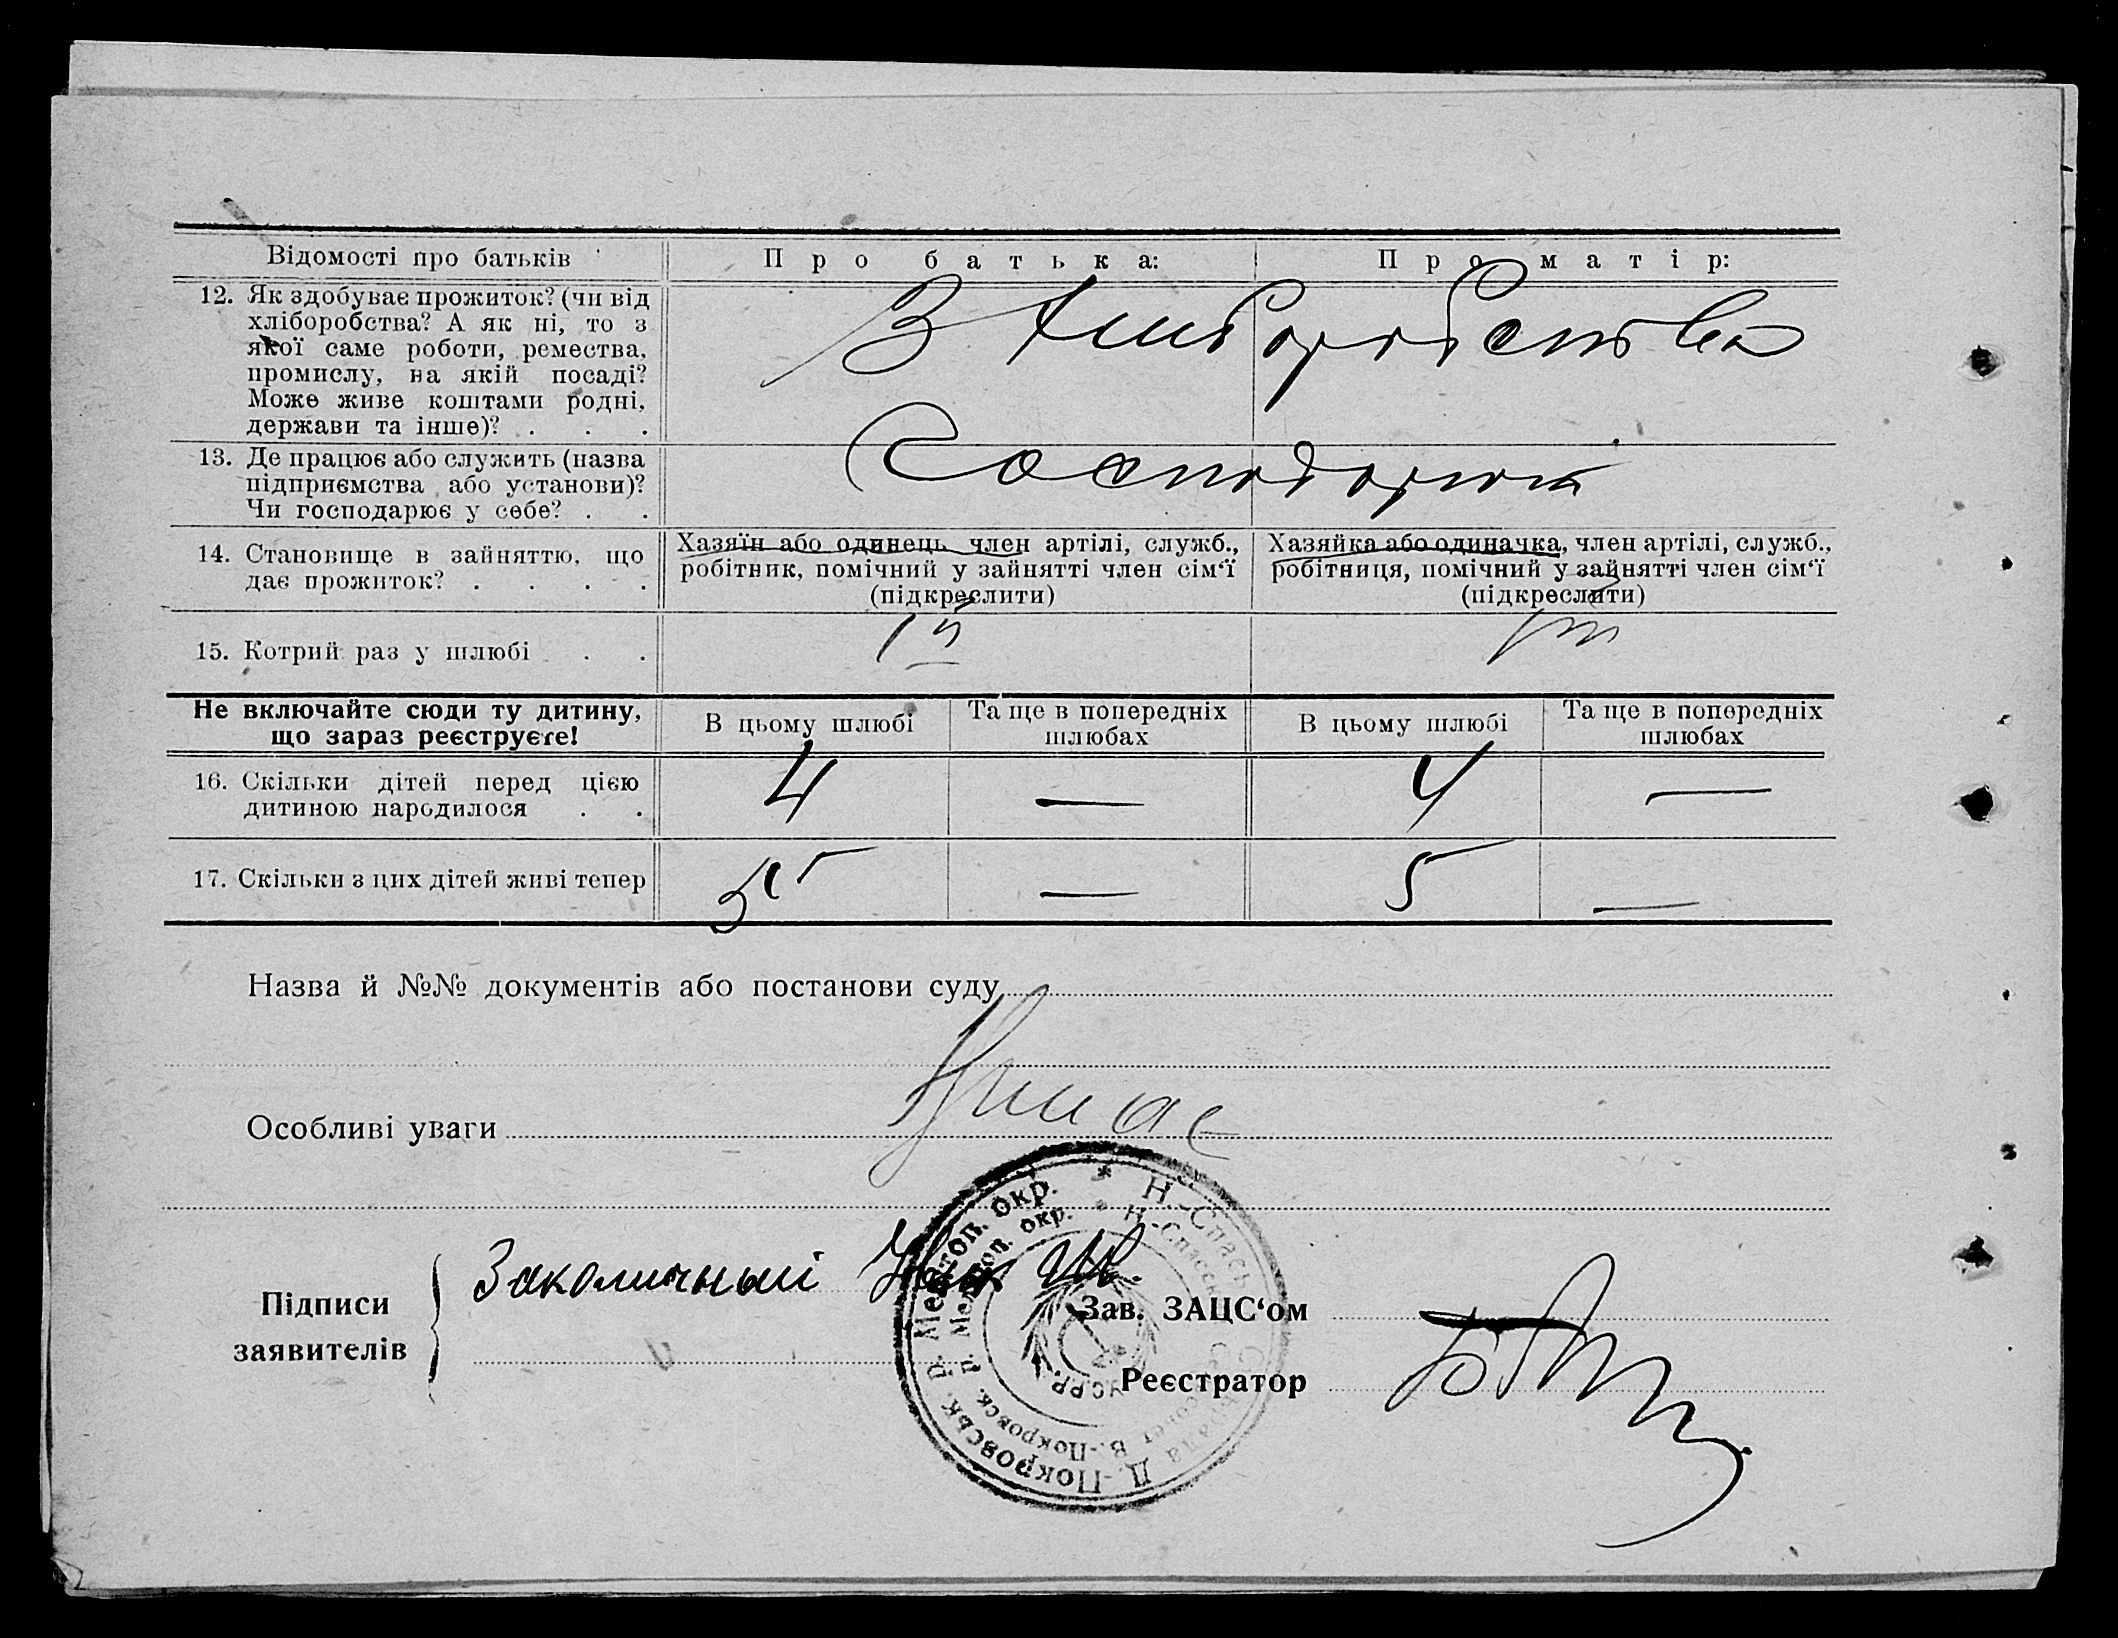 Відомості про батьків
Про батька:
Про матір:
12. Як здобуває прожиток? (чи від
хліборобства? А як ні, то з
якої саме роботи, ремества,
промислу, на якій посаді?
Може живе коштами родні,
держави та інше)? . . .
З хліборобства
13. Де працює або служить (назва
підприємства або установи)?
Чи господарює у себе? . .
Господарюют
14. Становище в зайняттю, що
дає прожиток? . . . .
Хазяїн або одинець, член артілі, служб.,
робітник, помічний у зайнятті член сім‘ї
(підкреслити)
Хазяйка або одиначка, член артілі, служб.,
робітниця, помічний у зайнятті член сім‘ї
(підкреслити)
15. Котрий раз у шлюбі . .
1й
Не включайте сюди ту дитину,
що зараз реєструєте!
В цьому шлюбі
Та ще в попередніх
шлюбах
В цьому шлюбі
Та ще в попередніх
шлюбах
16. Скільки дітей перед цією
дитиною народилося . .
4 — 4 —
17. Скільки з цих дітей живі тепер
5 — 5 —
Назва й №№ документів або постанови суду
Особливі уваги
Немає
Підписи
заявителів
Заколичный
Зав. ЗАЦС‘ом
Реєстратор
Н.-Спаськ Сільрада Д.-Покровськ. р. Мелітоп. окр.
Н.-Спасск. Сельсовет В.-Покровск. р. Мелитоп. окр.
УСРР